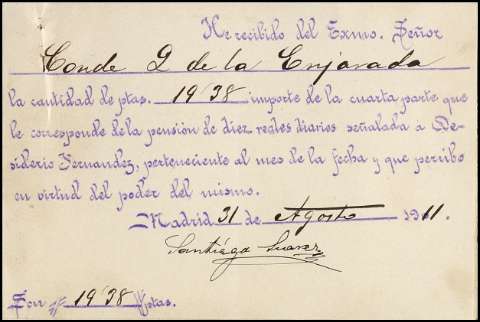 He recibido del Exmo. Señor
Conde 2 de la Enjarada
la cantidad de ptas. 19'38 importe de la cuarta parte que
le corresponde de la pensión de diez reales diarios señalada a De-
siderio Fernandez, perteneciente al mes de la fecha y que percibo
en virtud del poder del mismo.
Madrid 31 de Agosto 1911.
Santiago Suarez
Son 19'38 ptas.